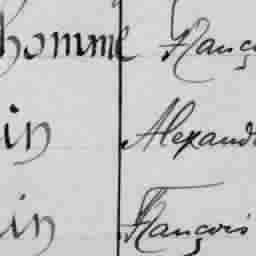 homme Franç
in Alexand
in François